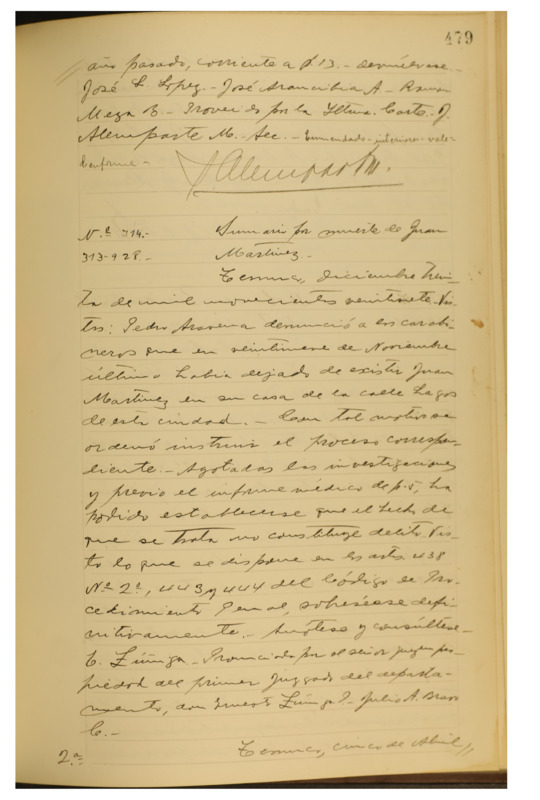 479
año pasado, corriente a f. 13.- devuélvase.-
José L. Lopez.- José Arancibia A.- Ramon
Meza B.- Proveido por la Iltma. Corte.- J.
Alemparte M. Sec.- Enmendado-interior-vale-
Conforme.-
J Alemparte M.
N.º 314.- Sumario por muerte de Juan
313-928.- Martinez.-
Temuco, diciembre trein-
ta de mil novecientos veintisiete. Vis-
tos: Pedro Aravena denunció a los carabi-
neros que en veintinueve de Noviembre
último habia dejado de existir Juan
Martinez en su casa de la calle Lagos
de esta ciudad.- Con tal motivo se
ordenó instruir el proceso correspon-
diente.- Agotadas las investigaciones
y previo el informe médico de f. 5, ha
podido establecerse que el hecho de
que se trata no constituye delito. Vis-
to lo que se dispone en los arts. 438
Nº 2º, 443 y 444 del Código de Pro-
cedimiento Penal, sobreséase defi-
nitivamente.- Anótese y consúltese.-
E. Zúñiga.- Pronunciada por el señor juez en pro-
piedad del primer Juzgado del departa-
mento, don Ernesto Zúñiga P.- Julio A. Bravo
C.-
2.ª Temuco, cinco de Abril